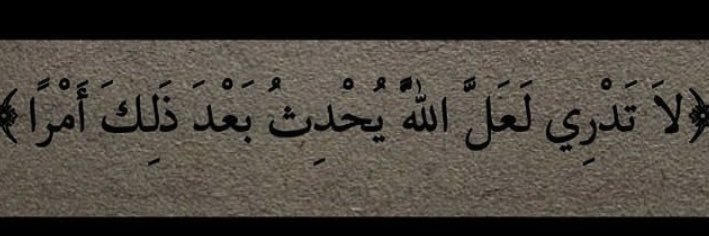 ﴿لاَ تَدْرِي لَعَلَّ اللَّهَ يُحْدِثُ بَعْدَ ذَلِكَ أَمْرًا﴾